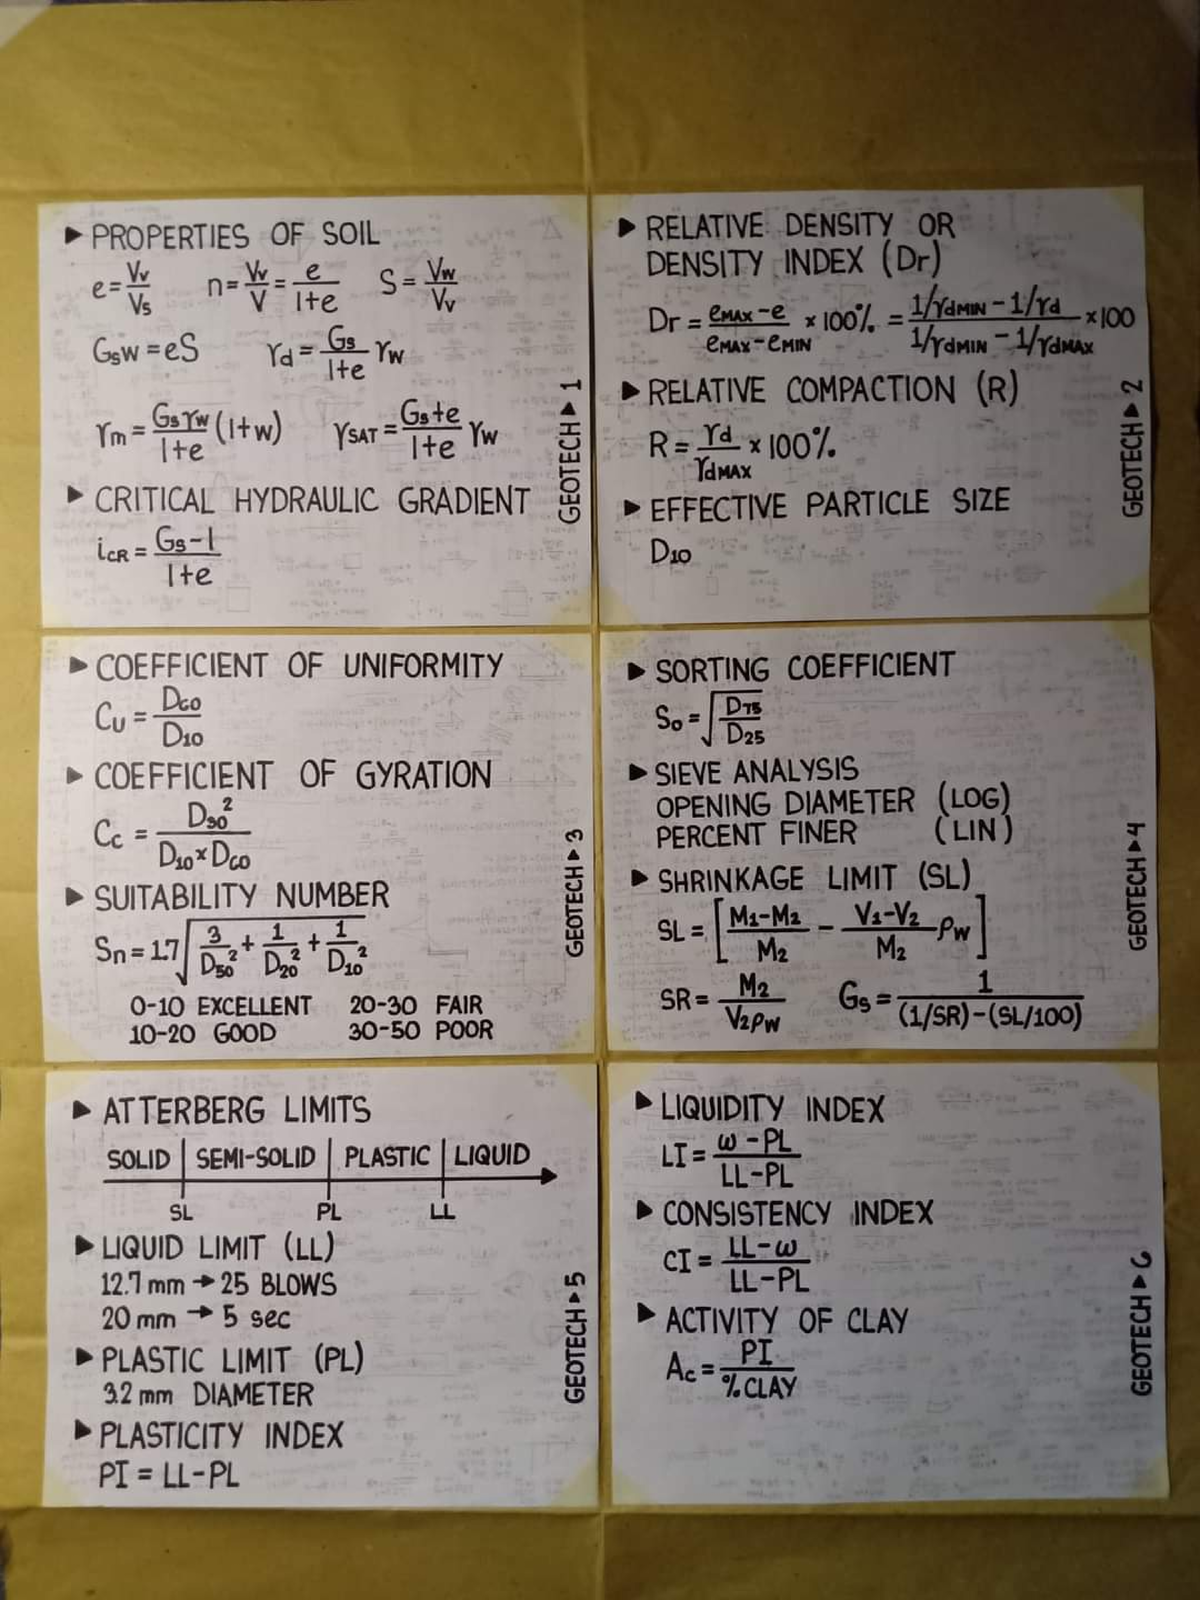 ▶ PROPERTIES OF SOIL
e = Vv/Vs n = Vv/V = e/1+e S = Vw/Vv
Gsw = eS γd = Gs/1+e γw
γm = Gsγw/1+e (1+w) γSAT = Gs+e/1+e γw
▶ CRITICAL HYDRAULIC GRADIENT
iCR = Gs-1/1+e
GEOTECH ▶ 1
▶ RELATIVE DENSITY OR
DENSITY INDEX (Dr)
Dr = eMAX-e/eMAX-eMIN × 100% = 1/γdMIN - 1/γd/1/γdMIN - 1/γdMAX × 100
▶ RELATIVE COMPACTION (R)
R = γd/γdMAX × 100%
▶ EFFECTIVE PARTICLE SIZE
D10
GEOTECH ▶ 2
▶ COEFFICIENT OF UNIFORMITY
Cu = D60/D10
▶ COEFFICIENT OF GYRATION
Cc = D30²/D10×D60
▶ SUITABILITY NUMBER
Sn = 1.7√3/D50² + 1/D20² + 1/D10²
0-10 EXCELLENT 20-30 FAIR
10-20 GOOD 30-50 POOR
GEOTECH ▶ 3
▶ SORTING COEFFICIENT
So = √D75/D25
▶ SIEVE ANALYSIS
OPENING DIAMETER (LOG)
PERCENT FINER (LIN)
▶ SHRINKAGE LIMIT (SL)
SL = [M1-M2/M2 - V1-V2/M2 ρw]
SR = M2/V2ρw Gs = 1/(1/SR)-(SL/100)
GEOTECH ▶ 4
▶ ATTERBERG LIMITS
SOLID SEMI-SOLID PLASTIC LIQUID
SL PL LL
▶ LIQUID LIMIT (LL)
12.7 mm → 25 BLOWS
20 mm → 5 sec
▶ PLASTIC LIMIT (PL)
3.2 mm DIAMETER
▶ PLASTICITY INDEX
PI = LL-PL
GEOTECH ▶ 5
▶ LIQUIDITY INDEX
LI = ω-PL/LL-PL
▶ CONSISTENCY INDEX
CI = LL-ω/LL-PL
▶ ACTIVITY OF CLAY
Ac = PI/% CLAY
GEOTECH ▶ 6